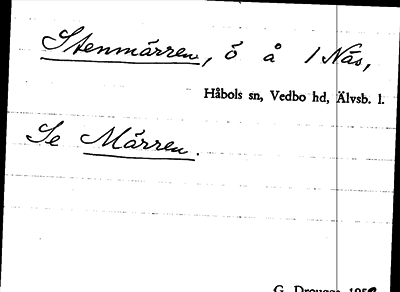 Stenmärren, ö å 1 Näs,
Håbols sn, Vedbo hd, Älvsb. l.
Se Märren.
G. Drougge 195